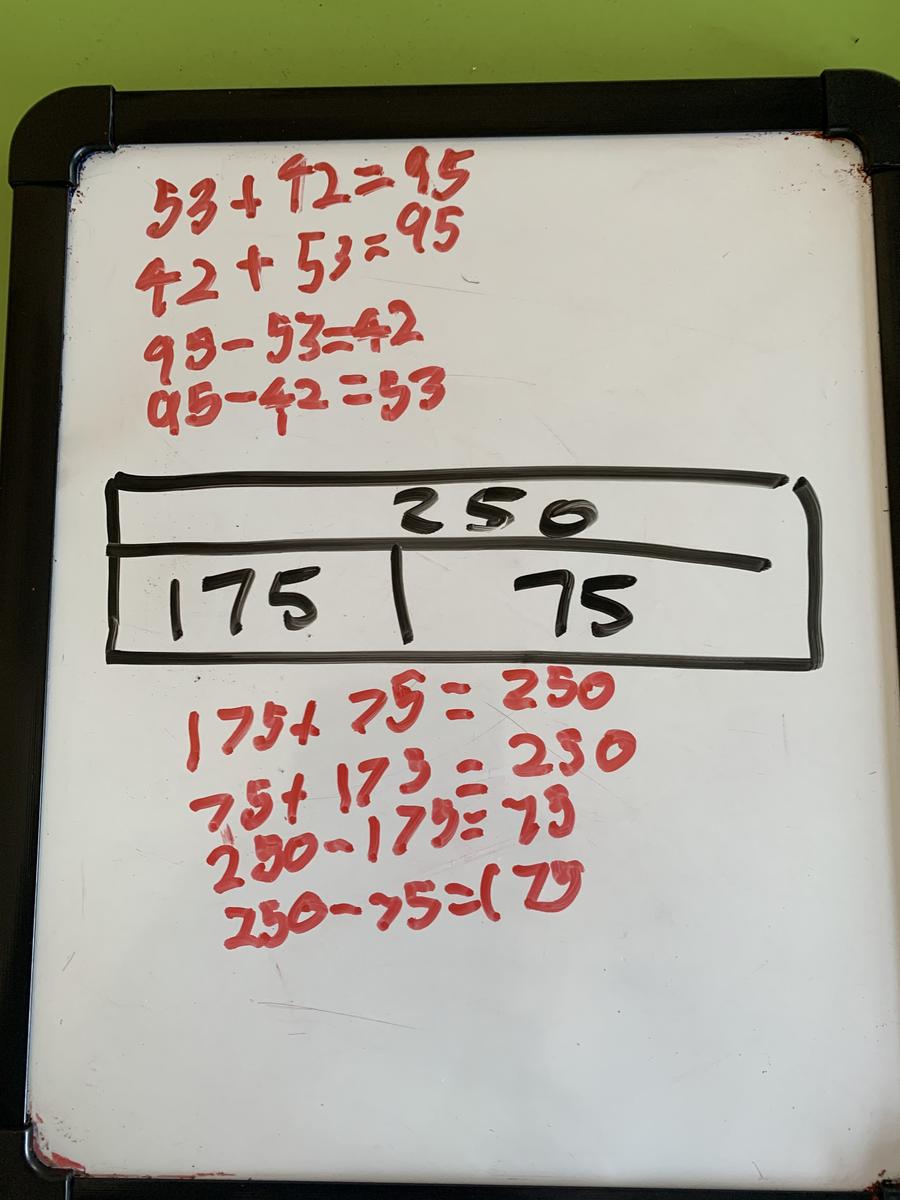 53 + 42 = 95
42 + 53 = 95
95 - 53 = 42
95 - 42 = 53
250
175 75
175 + 75 = 250
75 + 175 = 250
250 - 175 = 75
250 - 75 = 175